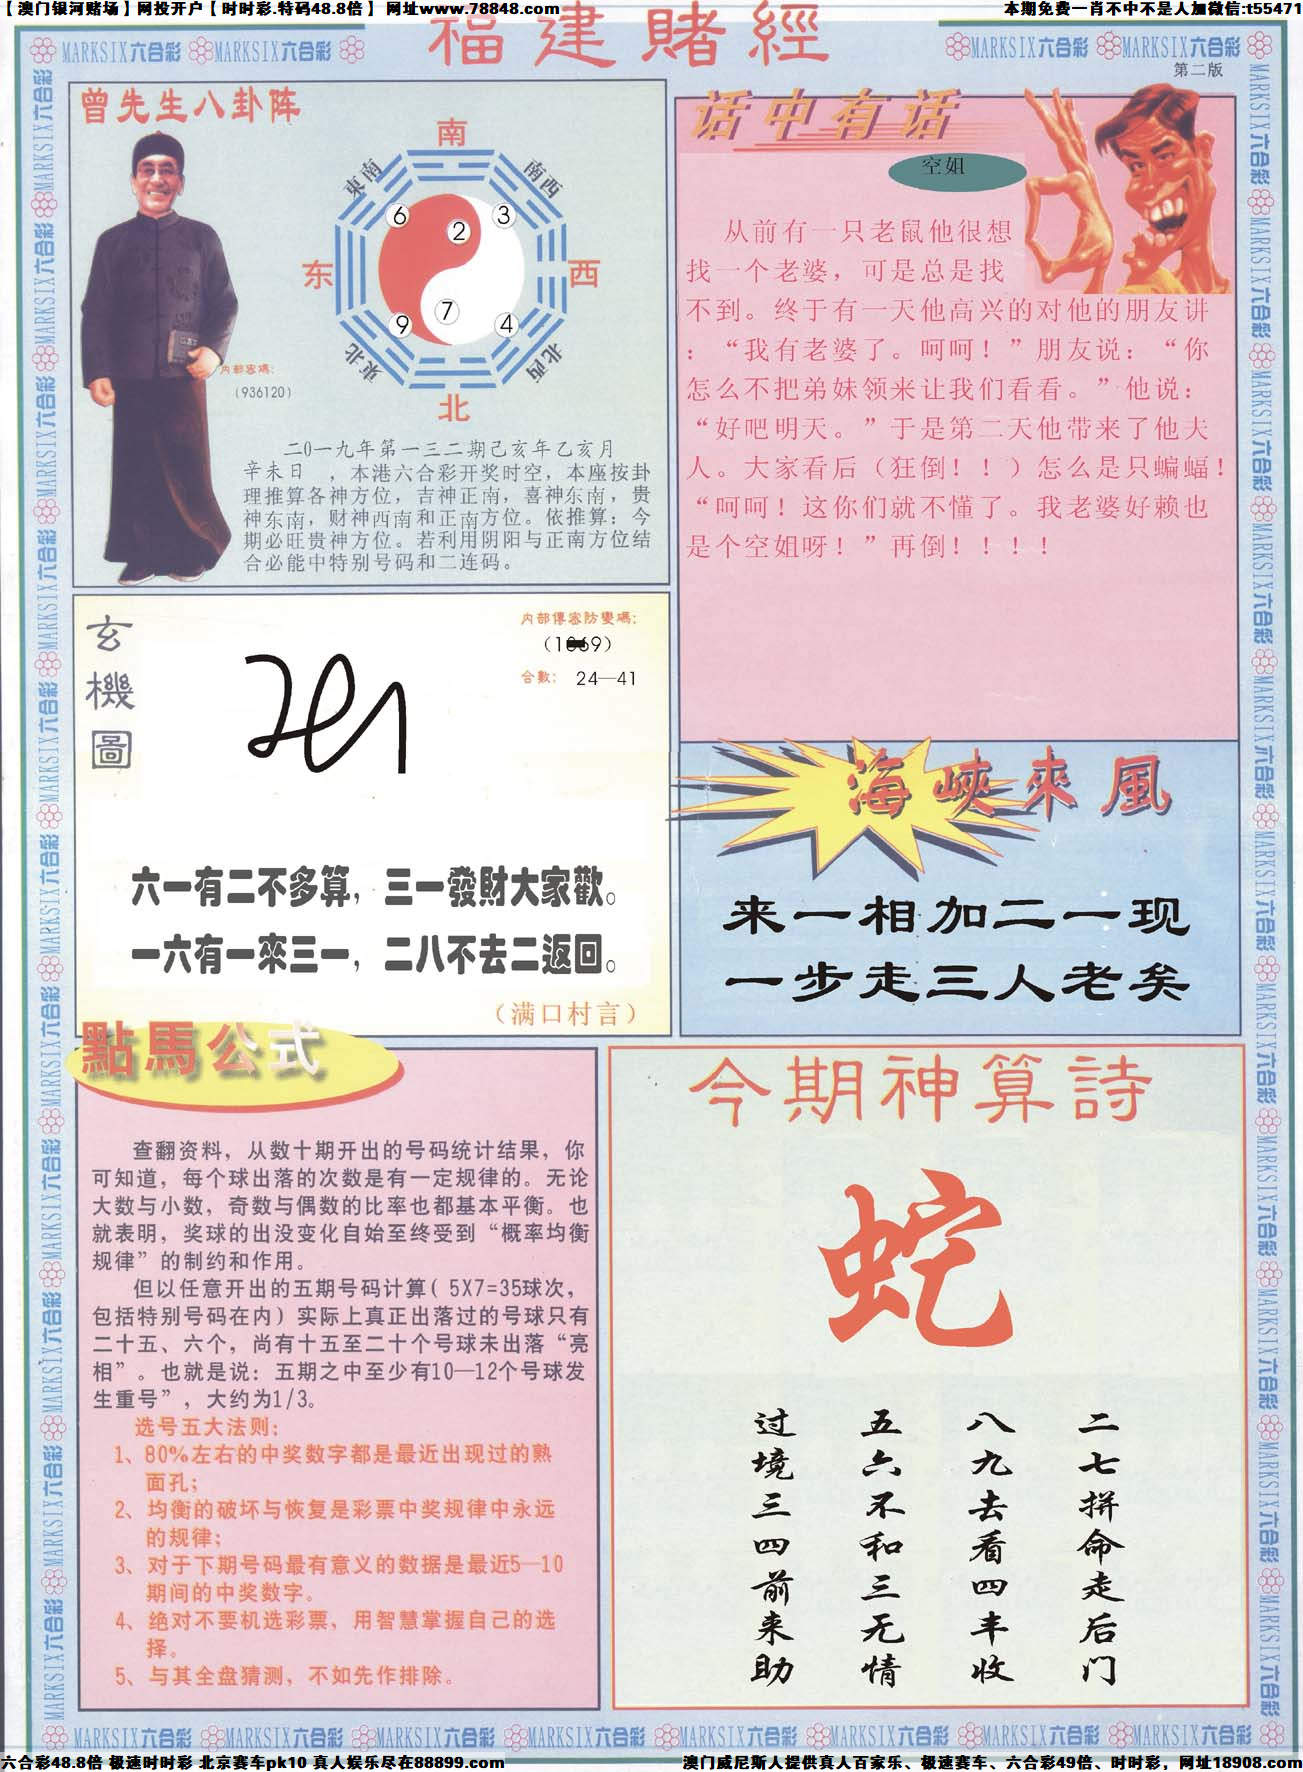 【澳门银河赌场】网投开户【时时彩.特码48.8倍】 网址www.78848.com
本期免费一肖不中不是人加微信:t55471
MARKSIX六合彩 MARKSIX六合彩
福建賭經
MARKSIX六合彩 MARKSIX六合彩
第二版
曾先生八卦阵
南
東南
南西
6
2
3
东
西
7
9
4
東北
北西
北
内部密碼:
(936120)
二0一九年第一三二期己亥年乙亥月
辛未日 ，本港六合彩开奖时空，本座按卦
理推算各神方位，吉神正南，喜神东南，贵
神东南，财神西南和正南方位。依推算：今
期必旺贵神方位。若利用阴阳与正南方位结
合必能中特别号码和二连码。
话中有话
空姐
从前有一只老鼠他很想
找一个老婆，可是总是找
不到。终于有一天他高兴的对他的朋友讲
：“我有老婆了。呵呵！”朋友说：“你
怎么不把弟妹领来让我们看看。”他说：
“好吧明天。”于是第二天他带来了他夫
人。大家看后（狂倒！！）怎么是只蝙蝠！
“呵呵！这你们就不懂了。我老婆好赖也
是个空姐呀！”再倒！！！！
玄機圖
内部傳密防變碼:
合數: 24—41
六一有二不多算，三一發財大家歡。
一六有一來三一，二八不去二返回。
（满口村言）
海峽來風
来一相加二一现
一步走三人老矣
點馬公式
查翻资料，从数十期开出的号码统计结果，你
可知道，每个球出落的次数是有一定规律的。无论
大数与小数，奇数与偶数的比率也都基本平衡。也
就表明，奖球的出没变化自始至终受到“概率均衡
规律”的制约和作用。
但以任意开出的五期号码计算( 5X7=35球次，
包括特别号码在内）实际上真正出落过的号球只有
二十五、六个，尚有十五至二十个号球未出落“亮
相”。也就是说：五期之中至少有10—12个号球发
生重号”，大约为1/3。
选号五大法则：
1、80%左右的中奖数字都是最近出现过的熟
面孔；
2、均衡的破坏与恢复是彩票中奖规律中永远
的规律；
3、对于下期号码最有意义的数据是最近5—10
期间的中奖数字。
4、绝对不要机选彩票，用智慧掌握自己的选
择。
5、与其全盘猜测，不如先作排除。
今期神算詩
蛇
二七拼命走后门
八九去看四丰收
五六不和三无情
过境三四前来助
MARKSIX六合彩 MARKSIX六合彩 MARKSIX六合彩 MARKSIX六合彩 MARKSIX六合彩 MARKSIX六合彩 MARKSIX六合彩 MARKSIX六合彩
六合彩48.8倍 极速时时彩 北京赛车pk10 真人娱乐尽在88899.com
澳门威尼斯人提供真人百家乐、极速赛车、六合彩49倍、时时彩，网址18908.com